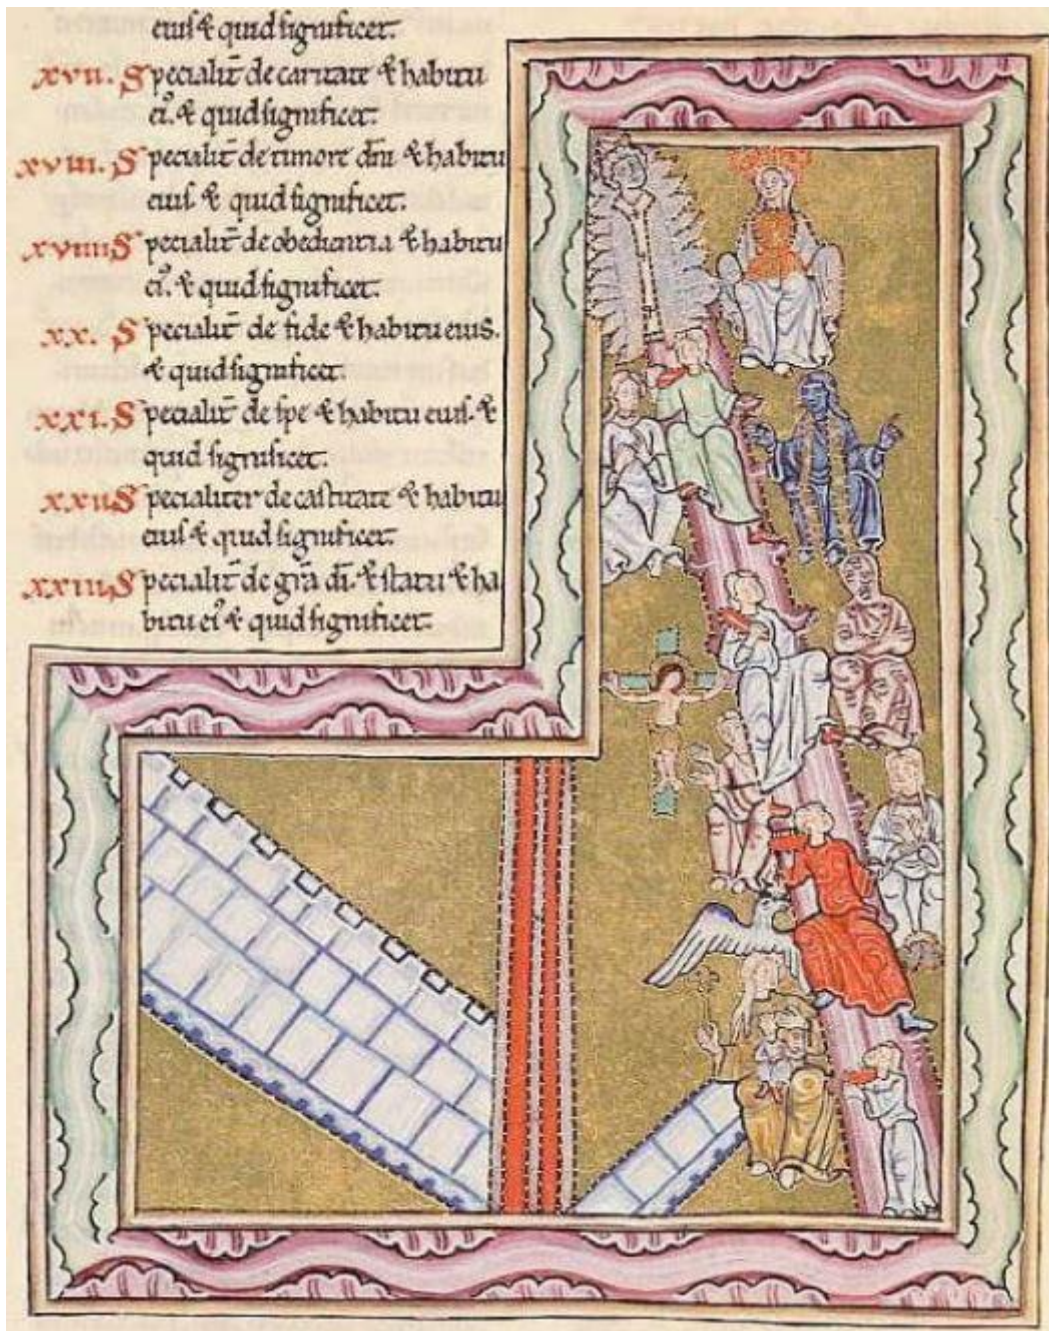 eiuſ ⁊ quid ſignificet.
xvii. Specialit̄ de caritate ⁊ habitu
eiꝰ. ⁊ quid ſignificet.
xviii. Specialit̄ de timore dn̄i ⁊ habitu
eiuſ ⁊ quid ſignificet.
xviiii Specialit̄ de obedientia ⁊ habitu
eiꝰ. ⁊ quid ſignificet.
xx. Specialit̄ de fide ⁊ habitu eiuſ.
⁊ quid ſignificet.
xxi. Specialit̄ de ſpe ⁊ habitu eiuſ. ⁊
quid ſignificet.
xxii Specialiter de caſtitate ⁊ habitu
eiuſ ⁊ quid ſignificet.
xxiii Specialit̄ de gr̄a dī. ⁊ ſtatu ⁊ ha
bitu eiꝰ ⁊ quid ſignificet.